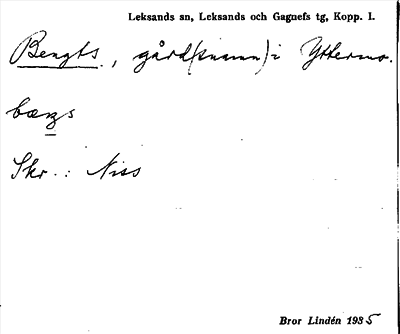 Leksands sn, Leksands och Gagnefs tg, Kopp. l.
Bengts, gård(snamn) i Yttermo.
bæŋs
Skr.: Niss
Bror Lindén 1935